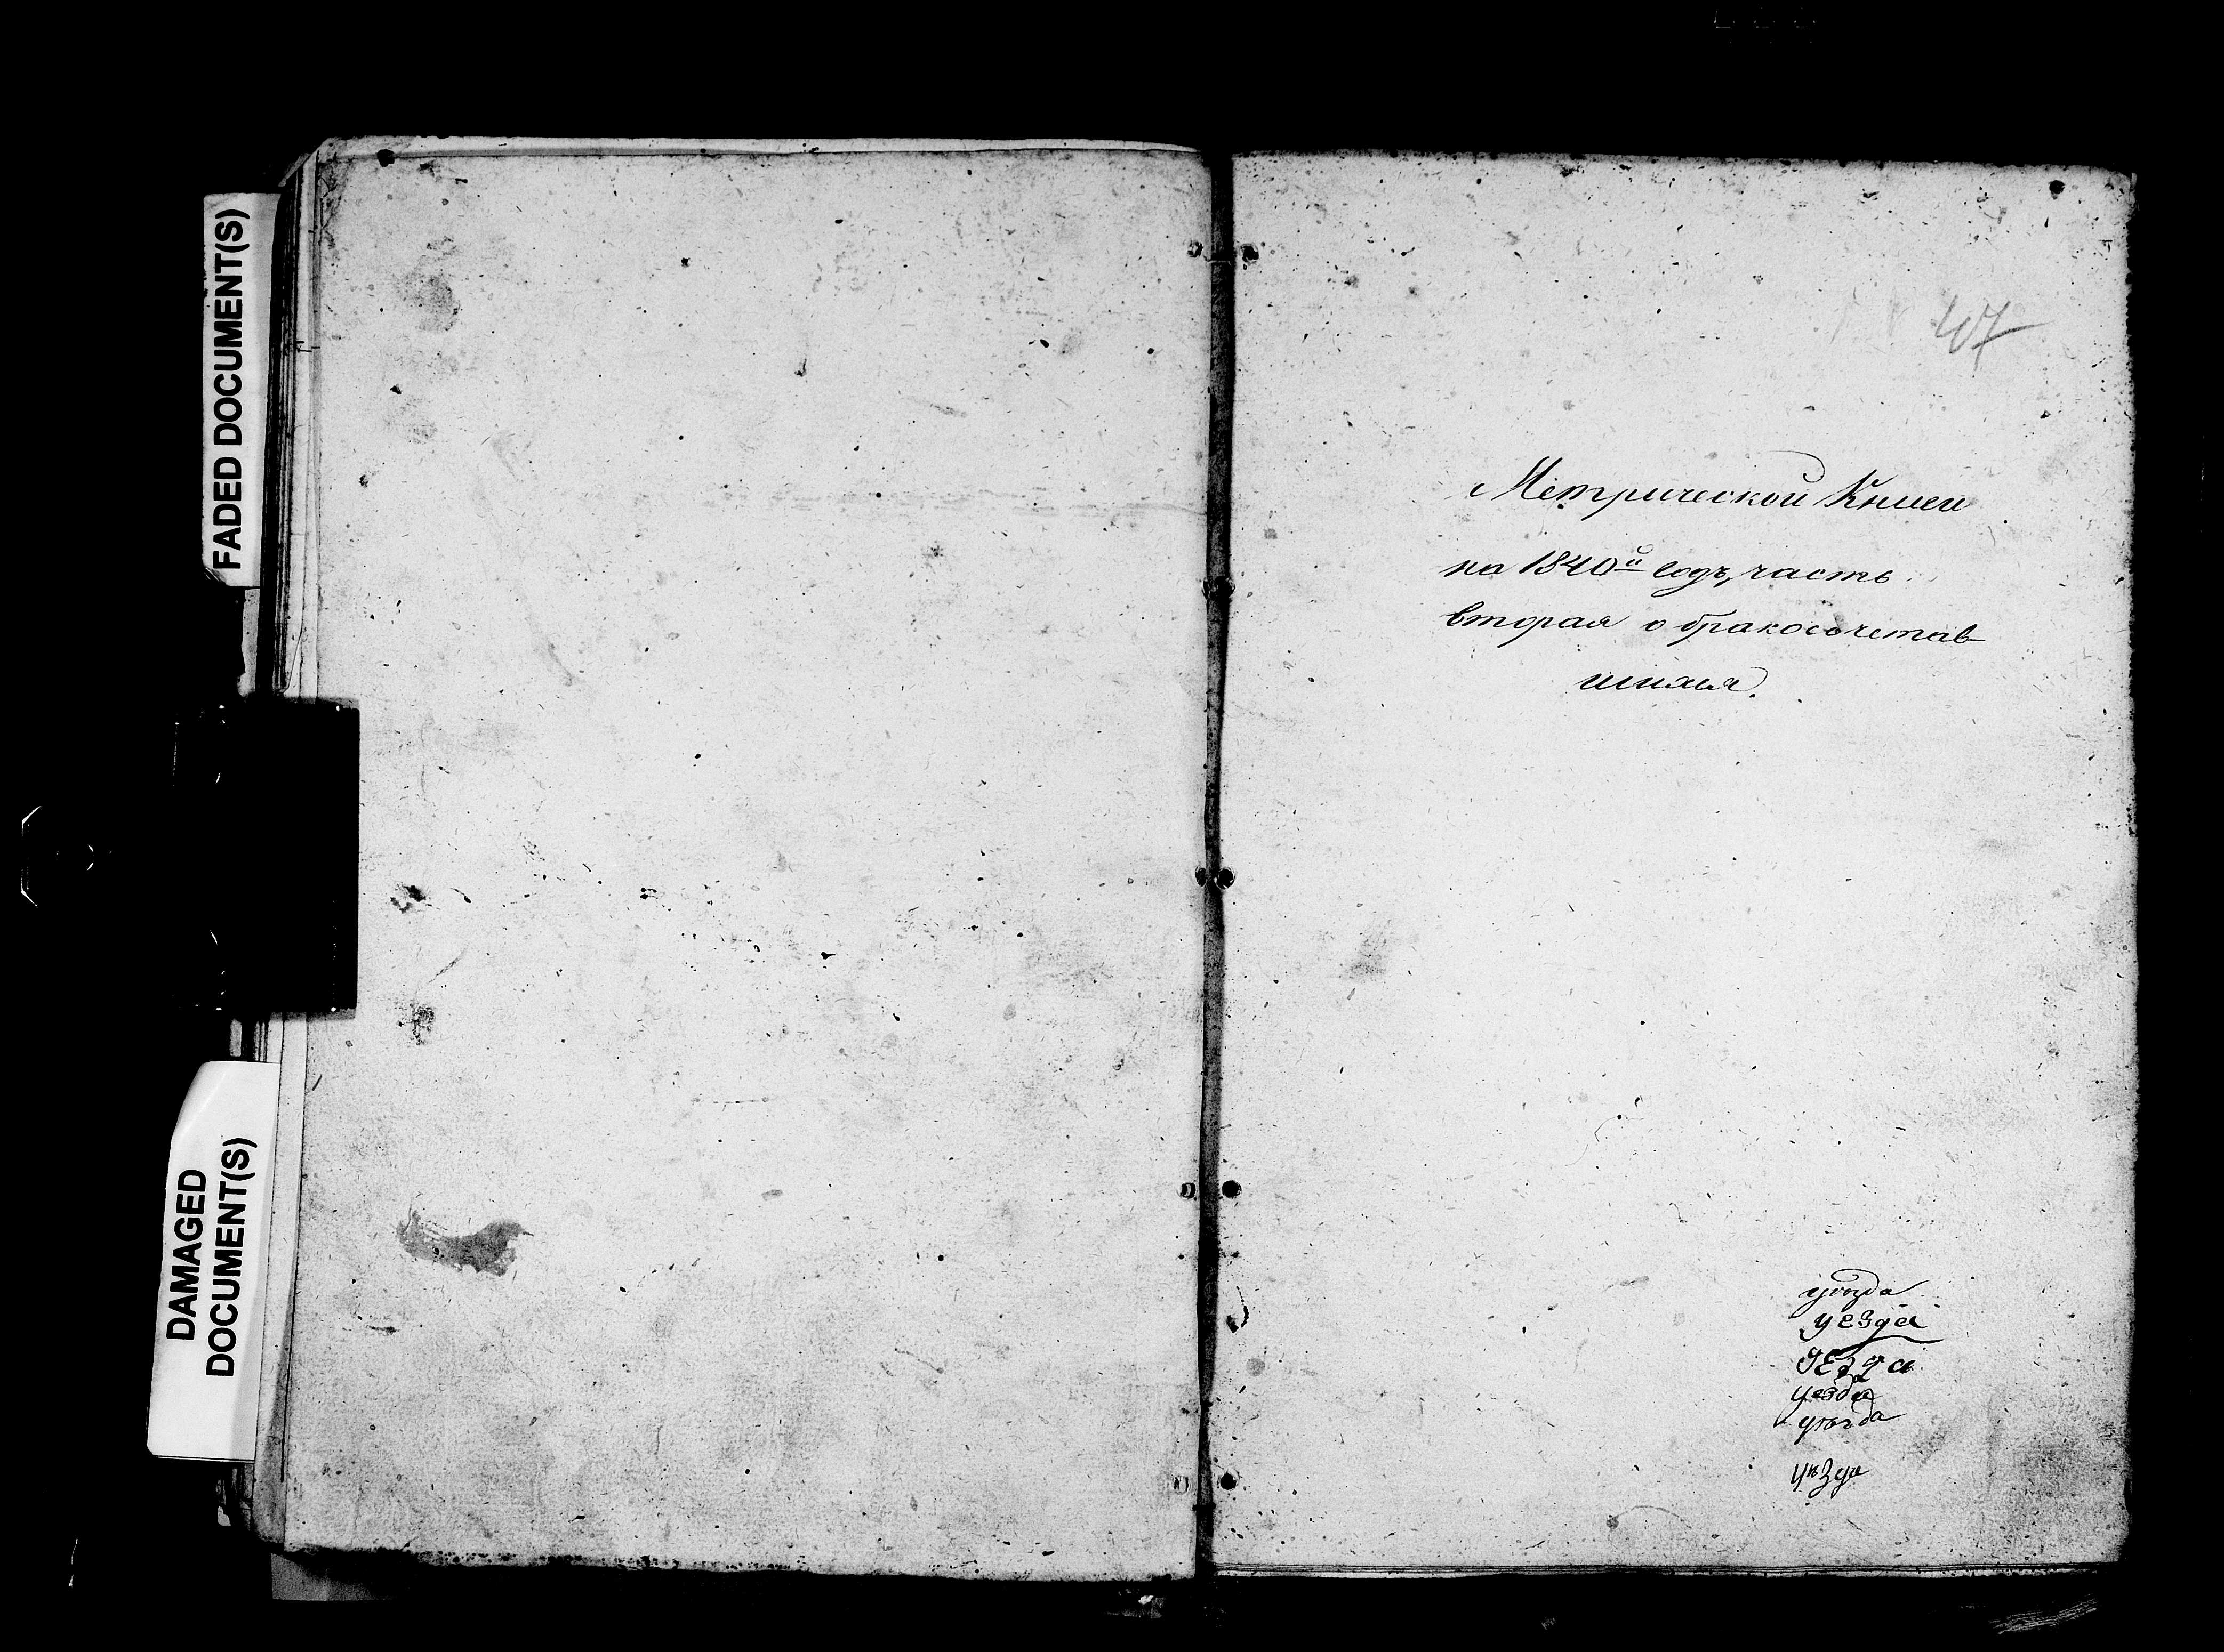 FADED DOCUMENT(S)
DAMAGED
DOCUMENT(S)
47
Метрической Книги
на 1840й годъ, часть
вторая о бракосочетав
шихся.
уѣзда
уезда
уезда
уезда
уѣзда
уѣзда